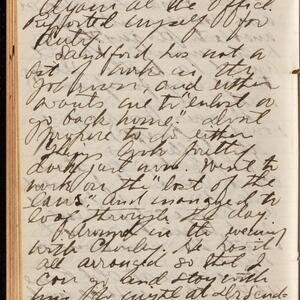 again at the office.
Reported myself for
duty.
Sandford has not a
bit of work in the
and either
wants me to "enlist or
go back home." don't
propose to do either
Things look pretty
dark just now. Went to
work on the "list of the
and managed to
loaf through the day.
Around in the evening
with Charley. He has it
all arranged so that I
can go and stay with
him